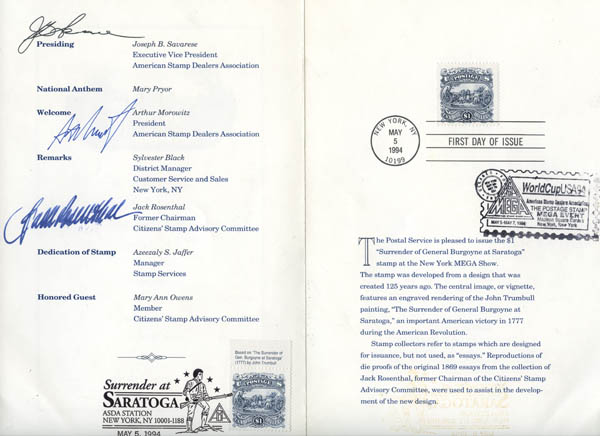 Presiding Joseph B. Savarese
Executive Vice President
American Stamp Dealers Association
National Anthem Mary Pryor
Welcome Arthur Morowitz
President
American Stamp Dealers Association
Remarks Sylvester Black
District Manager
Customer Service and Sales
New York, NY
Jack Rosenthal
Former Chairman
Citizens' Stamp Advisory Committee
Dedication of Stamp Azeezaly S. Jaffer
Manager
Stamp Services
Honored Guest Mary Ann Owens
Member
Citizens' Stamp Advisory Committee
Surrender at
SARATOGA
ASDA STATION
NEW YORK, NY 10001-1188
MAY 5, 1994
Based on "The Surrender of
Gen. Burgoyne at Saratoga"
(1777) by John Trumbull
POSTAGE
$1
POSTAGE
$1
NEW YORK, NY
MAY
5
1994
10199
FIRST DAY OF ISSUE
WorldCupUSA94
American Stamp Dealers Association
THE POSTAGE STAMP
MEGA EVENT
Madison Square Garden
New York, New York
MAY 5-MAY 7, 1994
MEGA
The Postal Service is pleased to issue the $1
"Surrender of General Burgoyne at Saratoga"
stamp at the New York MEGA Show.
The stamp was developed from a design that was
created 125 years ago. The central image, or vignette,
features an engraved rendering of the John Trumbull
painting, "The Surrender of General Burgoyne at
Saratoga," an important American victory in 1777
during the American Revolution.
Stamp collectors refer to stamps which are designed
for issuance, but not used, as "essays." Reproductions of
die proofs of the original 1869 essays from the collection of
Jack Rosenthal, former Chairman of the Citizens' Stamp
Advisory Committee, were used to assist in the develop-
ment of the new design.